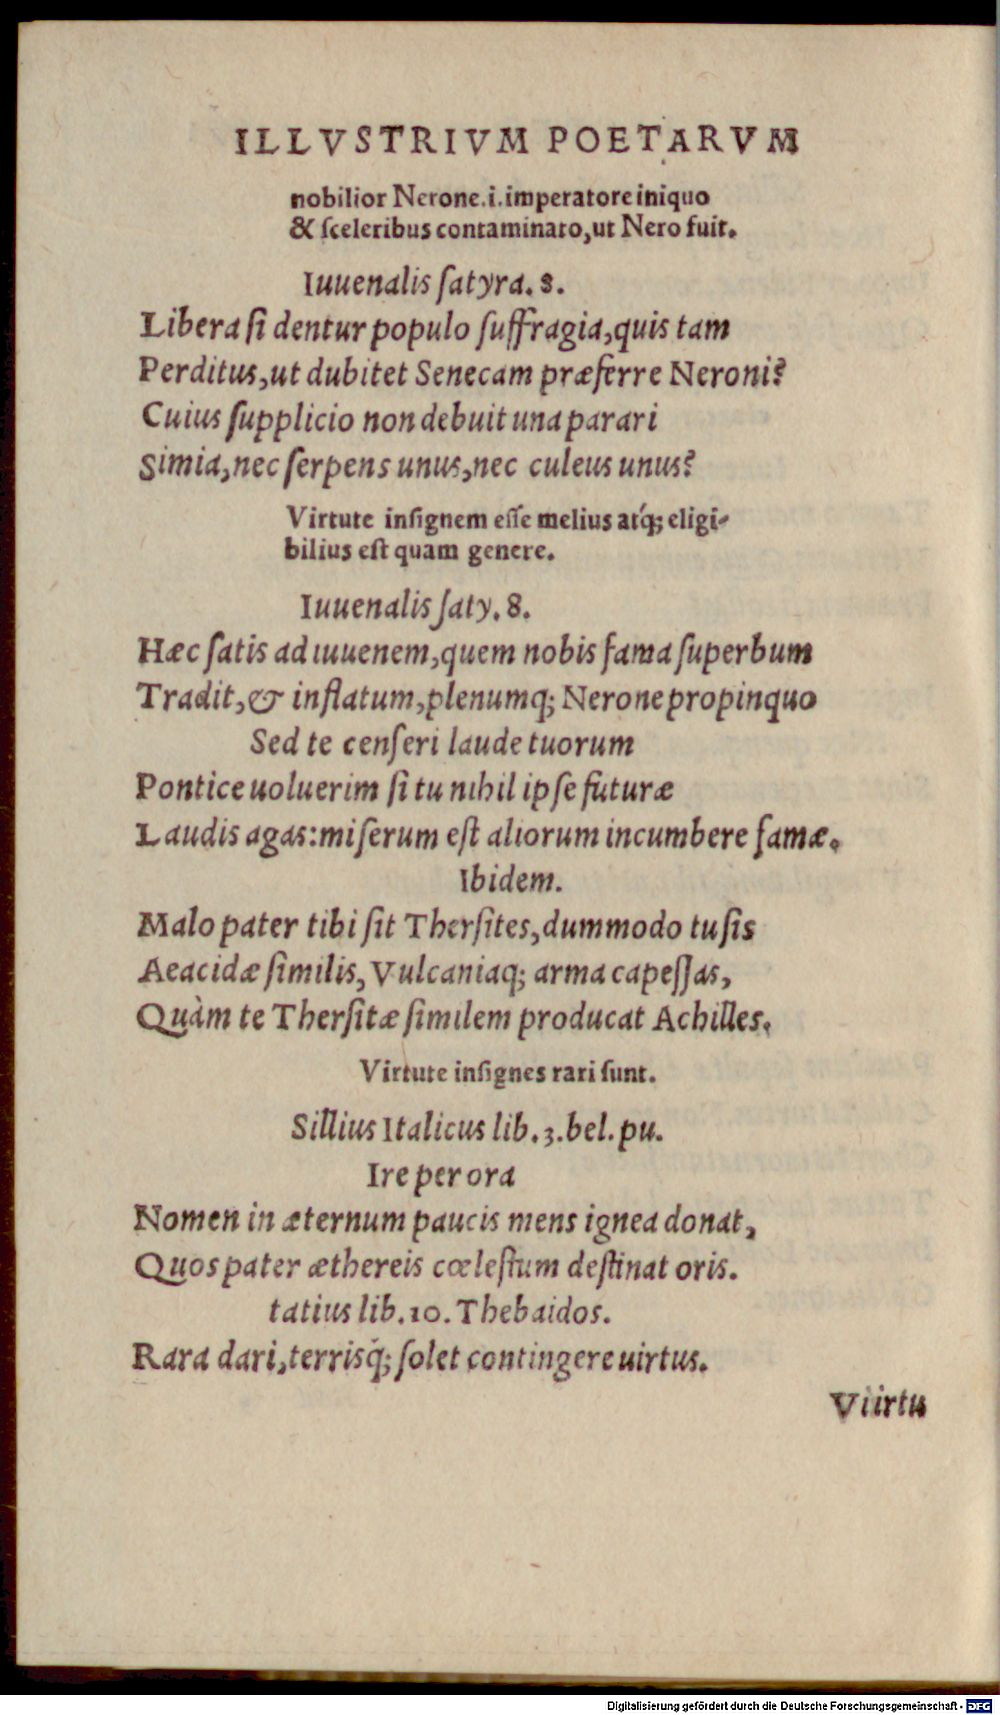 ILLVSTRIVM POETARVM
nobilior Nerone.i.imperatore iniquo
& sceleribus contaminato,ut Nero fuit.
Iuuenalis satyra. 8.
Libera si dentur populo suffragia,quis tam
Perditus,ut dubitet Senecam præferre Neroni?
Cuius supplicio non debuit una parari
Simia,nec serpens unus,nec culeus unus?
Virtute insignem esse melius atq́; eligi-
bilius est quam genere.
Iuuenalis saty. 8.
Hæc satis ad iuuenem,quem nobis fama superbum
Tradit,& inflatum,plenumq; Nerone propinquo
Sed te censeri laude tuorum
Pontice uoluerim si tu nihil ipse futuræ
Laudis agas:miserum est aliorum incumbere famæ.
Ibidem.
Malo pater tibi sit Thersites,dummodo tu sis
Aeacidæ similis, Vulcaniaq; arma capessas,
Quàm te Thersitæ similem producat Achilles.
Virtute insignes rari sunt.
Sillius Italicus lib.3.bel.pu.
Ire per ora
Nomen in æternum paucis mens ignea donat,
Quos pater æthereis cœlestum destinat oris.
tatius lib.10. Thebaidos.
Rara dari,terrisq́; solet contingere uirtus.
Viirtu
Digitalisierung gefördert durch die Deutsche Forschungsgemeinschaft - DFG